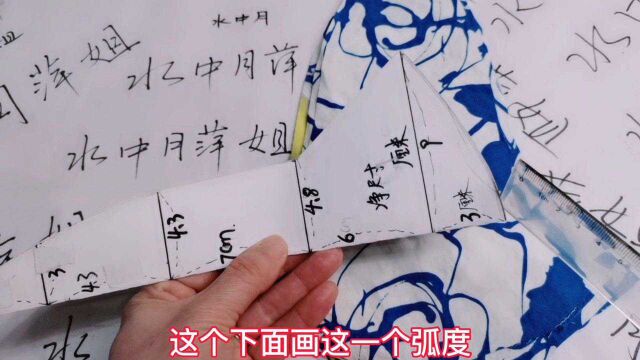 水中月
萍姐
水中月萍
水中月萍姐
水
姐
3
4.3
4.3
7cm
4.8
6
净尺寸
厘米
9
3厘米
水
这个下面画这一个弧度